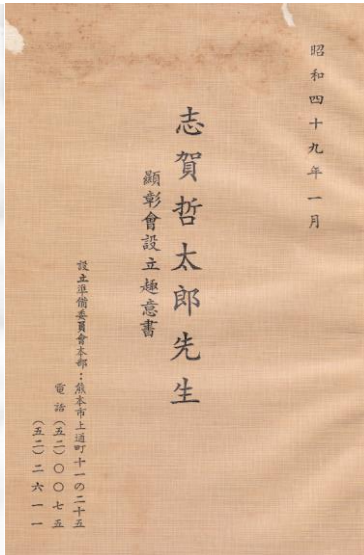 昭和四十九年一月
志賀哲太郎先生
顯彰會設立趣意書
設立準備委員會本部：熊本市上通町十一の二十五
電話(五二)〇〇七五
(五二)二六一一